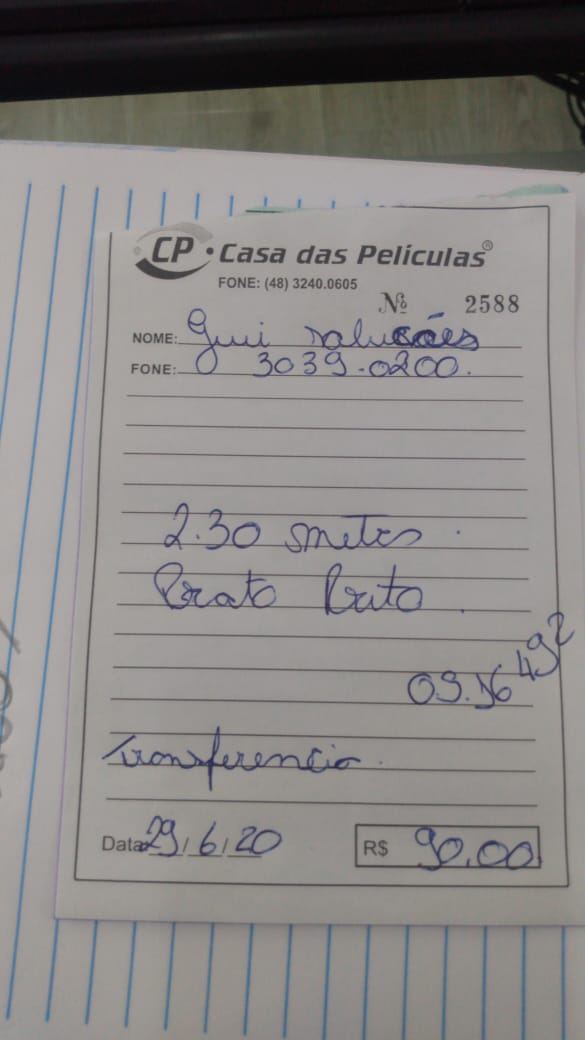 CP • Casa das Películas®
FONE: (48) 3240.0605
Nº 2588
NOME: Gui Soluções
FONE: 3039-0200.
2.30 metros.
Prata
09.16
Transferencia.
Data 29/6/20
R$ 90,00